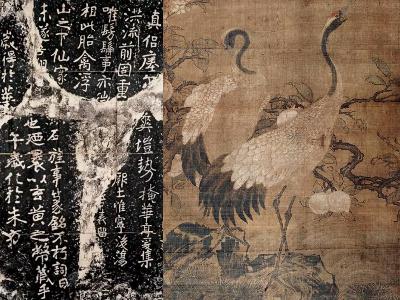 歲得於華
午歲化於朱方
未遂吾
也廼裹以玄黃之幣藏乎
山之下仙家
石旌事篆銘不朽詞曰
相此胎禽浮
唯髣髴事亦
洪流前固重
爽塏勢掩華亭爰集
真侶瘞